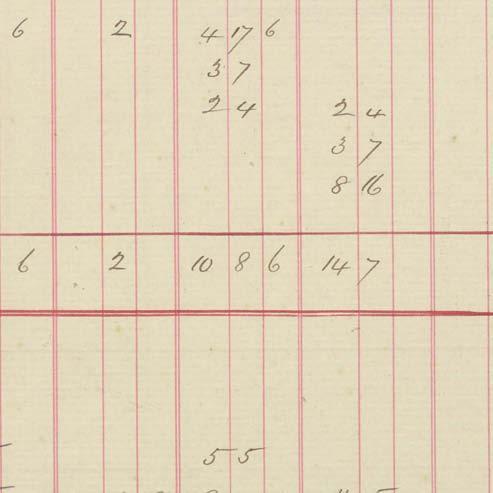 6 2 4 17 6
3 7
2 4 2 4
3 7
8 16
6 2 10 8 6 14 7
5 5